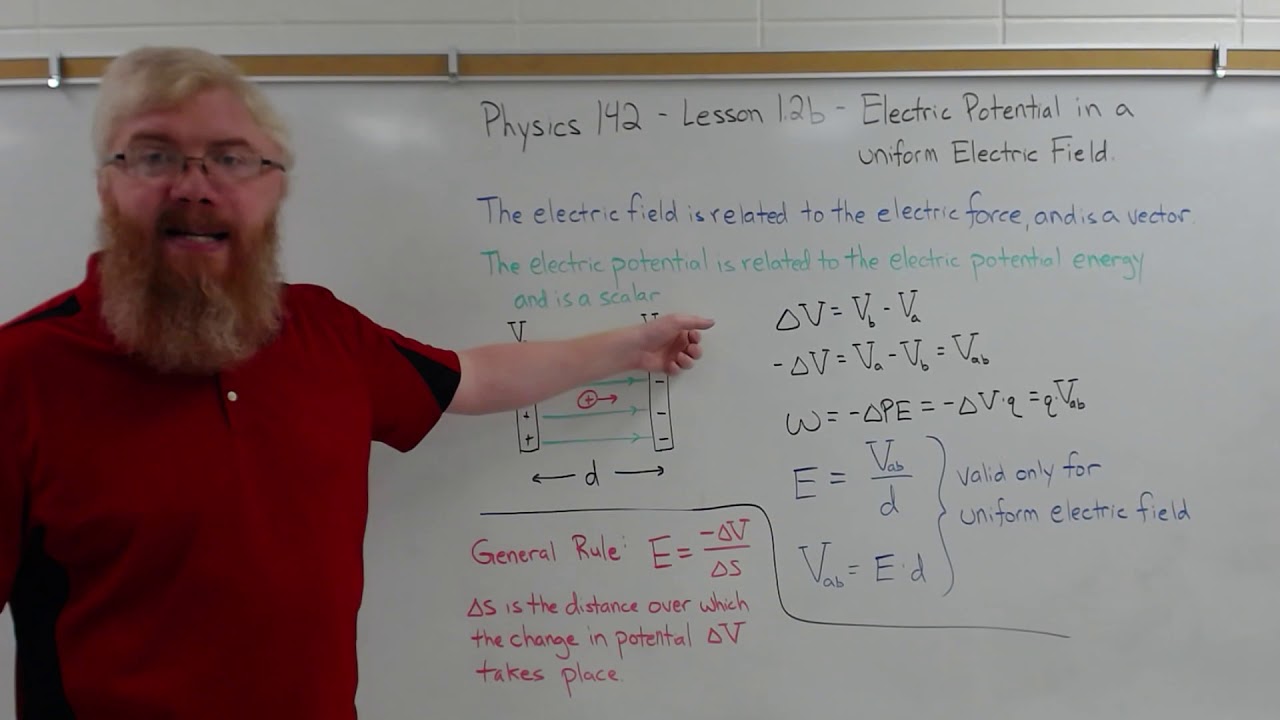 Physics 142 - Lesson 1.2b - Electric Potential in a
uniform Electric Field.
The electric field is related to the electric force, and is a vector.
The electric potential is related to the electric potential energy
and is a scalar
V
+
+
-
-
-
+
d
ΔV = V_b - V_a
-ΔV = V_a - V_b = V_ab
W = -ΔPE = -ΔV·q = q·V_ab
E = V_ab / d
V_ab = E·d
valid only for
uniform electric field
General Rule: E = -ΔV / ΔS
ΔS is the distance over which
the change in potential ΔV
takes place.